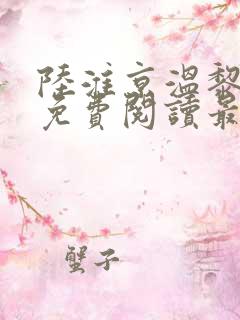 陸淮京溫黎
免費閱讀最
蟹子